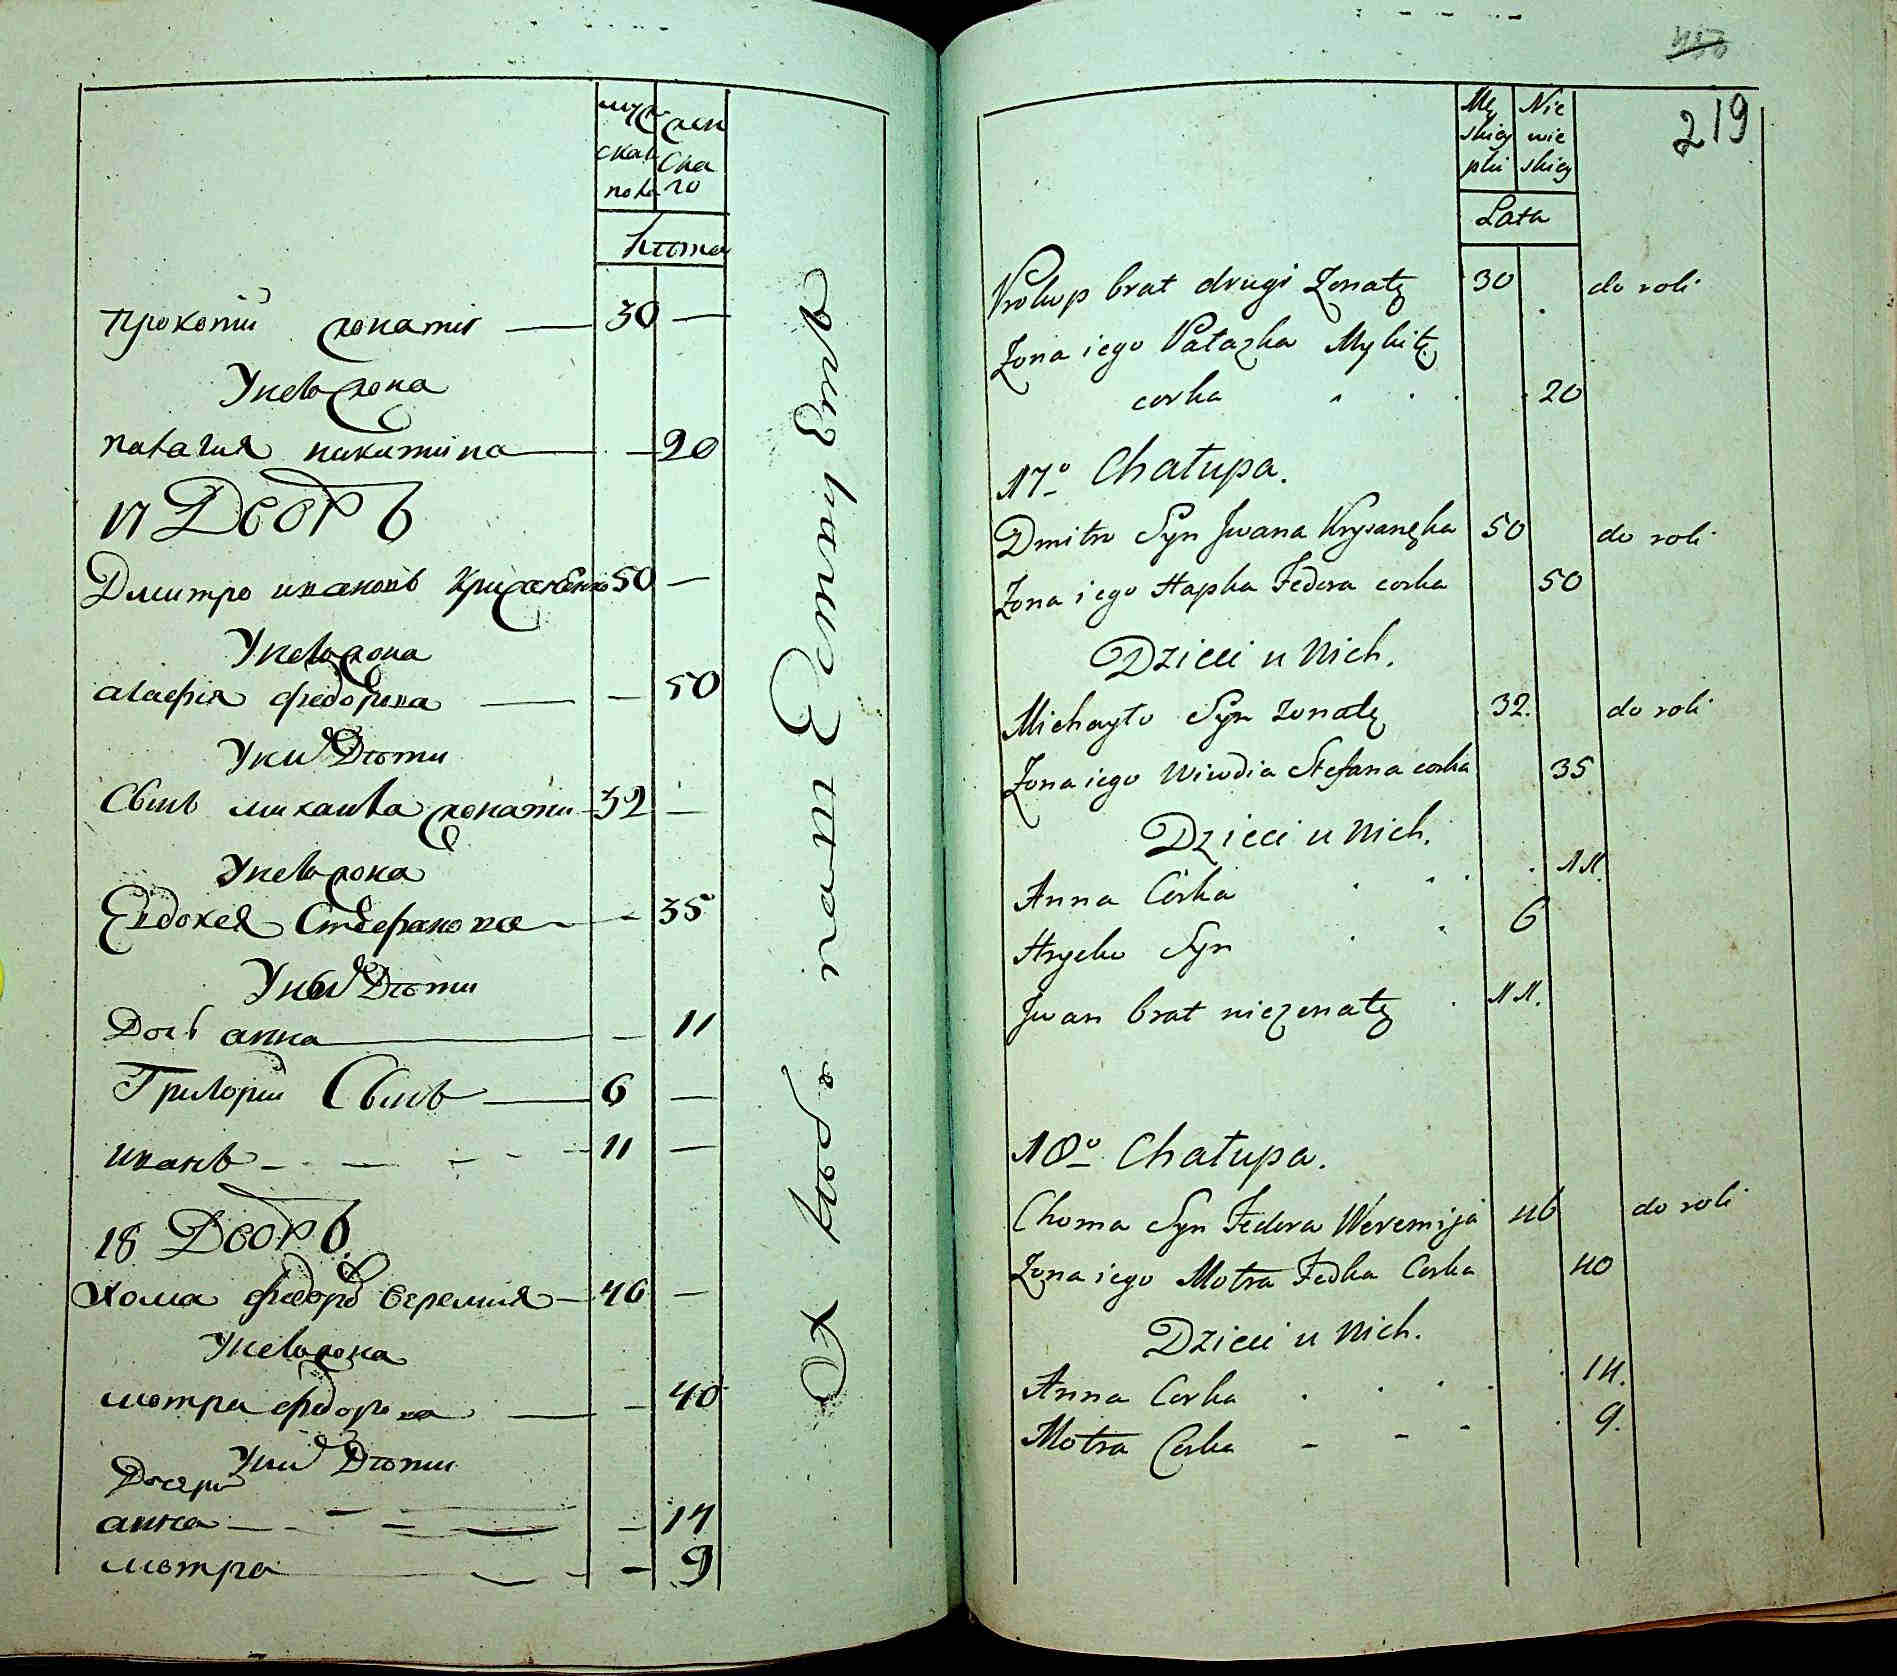 муж женска
скаго
пола го
Лѣта
Прокопій жонатій — 30 —
У нево жона
палагия никитина — 20
17 Дворъ
Дмитро ивановъ 50 —
У нево жона
агафия федорова — 50
У ни Дѣти
Сынъ михаила жонати 32 —
У нево жона
Евдокея Стефанова — 35
У ни Дѣти
Дочь анна — 11
Григорій Сынъ — 6 —
иванъ - - - 11 —
18 Дворъ
Хома федоръ веремия — 46 —
У нево жона
мотра федорова — 40
У ни Дѣти
Дочери
анна — 14
мотра — 9
219
Mę Nie
skiey wie
płci skiey
Lata
Prokop brat drugi Żonatę 30 do roli
Żona iego Pałazka Mykitę
corka 20
17º Chałupa.
Dmitro Syn Jwana 50 do roli
Żona iego Hapka Fedora corka 50
Dzieci u Nich.
Michayło Syn żonatę 32. do roli
Żona iego Wiwdia Stefana corka 35
Dzieci u Nich.
Anna Córka 11.
Hryćko Syn 6
Jwan brat nieżenatę 11.
18º Chałupa.
Choma Syn Fedora Weremija 46 do roli
Żona iego Motra Fedka Corka 40
Dzieci u Nich.
Anna Corka 14.
Motra Corka 9.